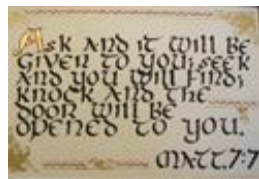 Ask and it will be
given to you; seek
and you will find;
knock and the
door will be
opened to you.
Matt. 7:7